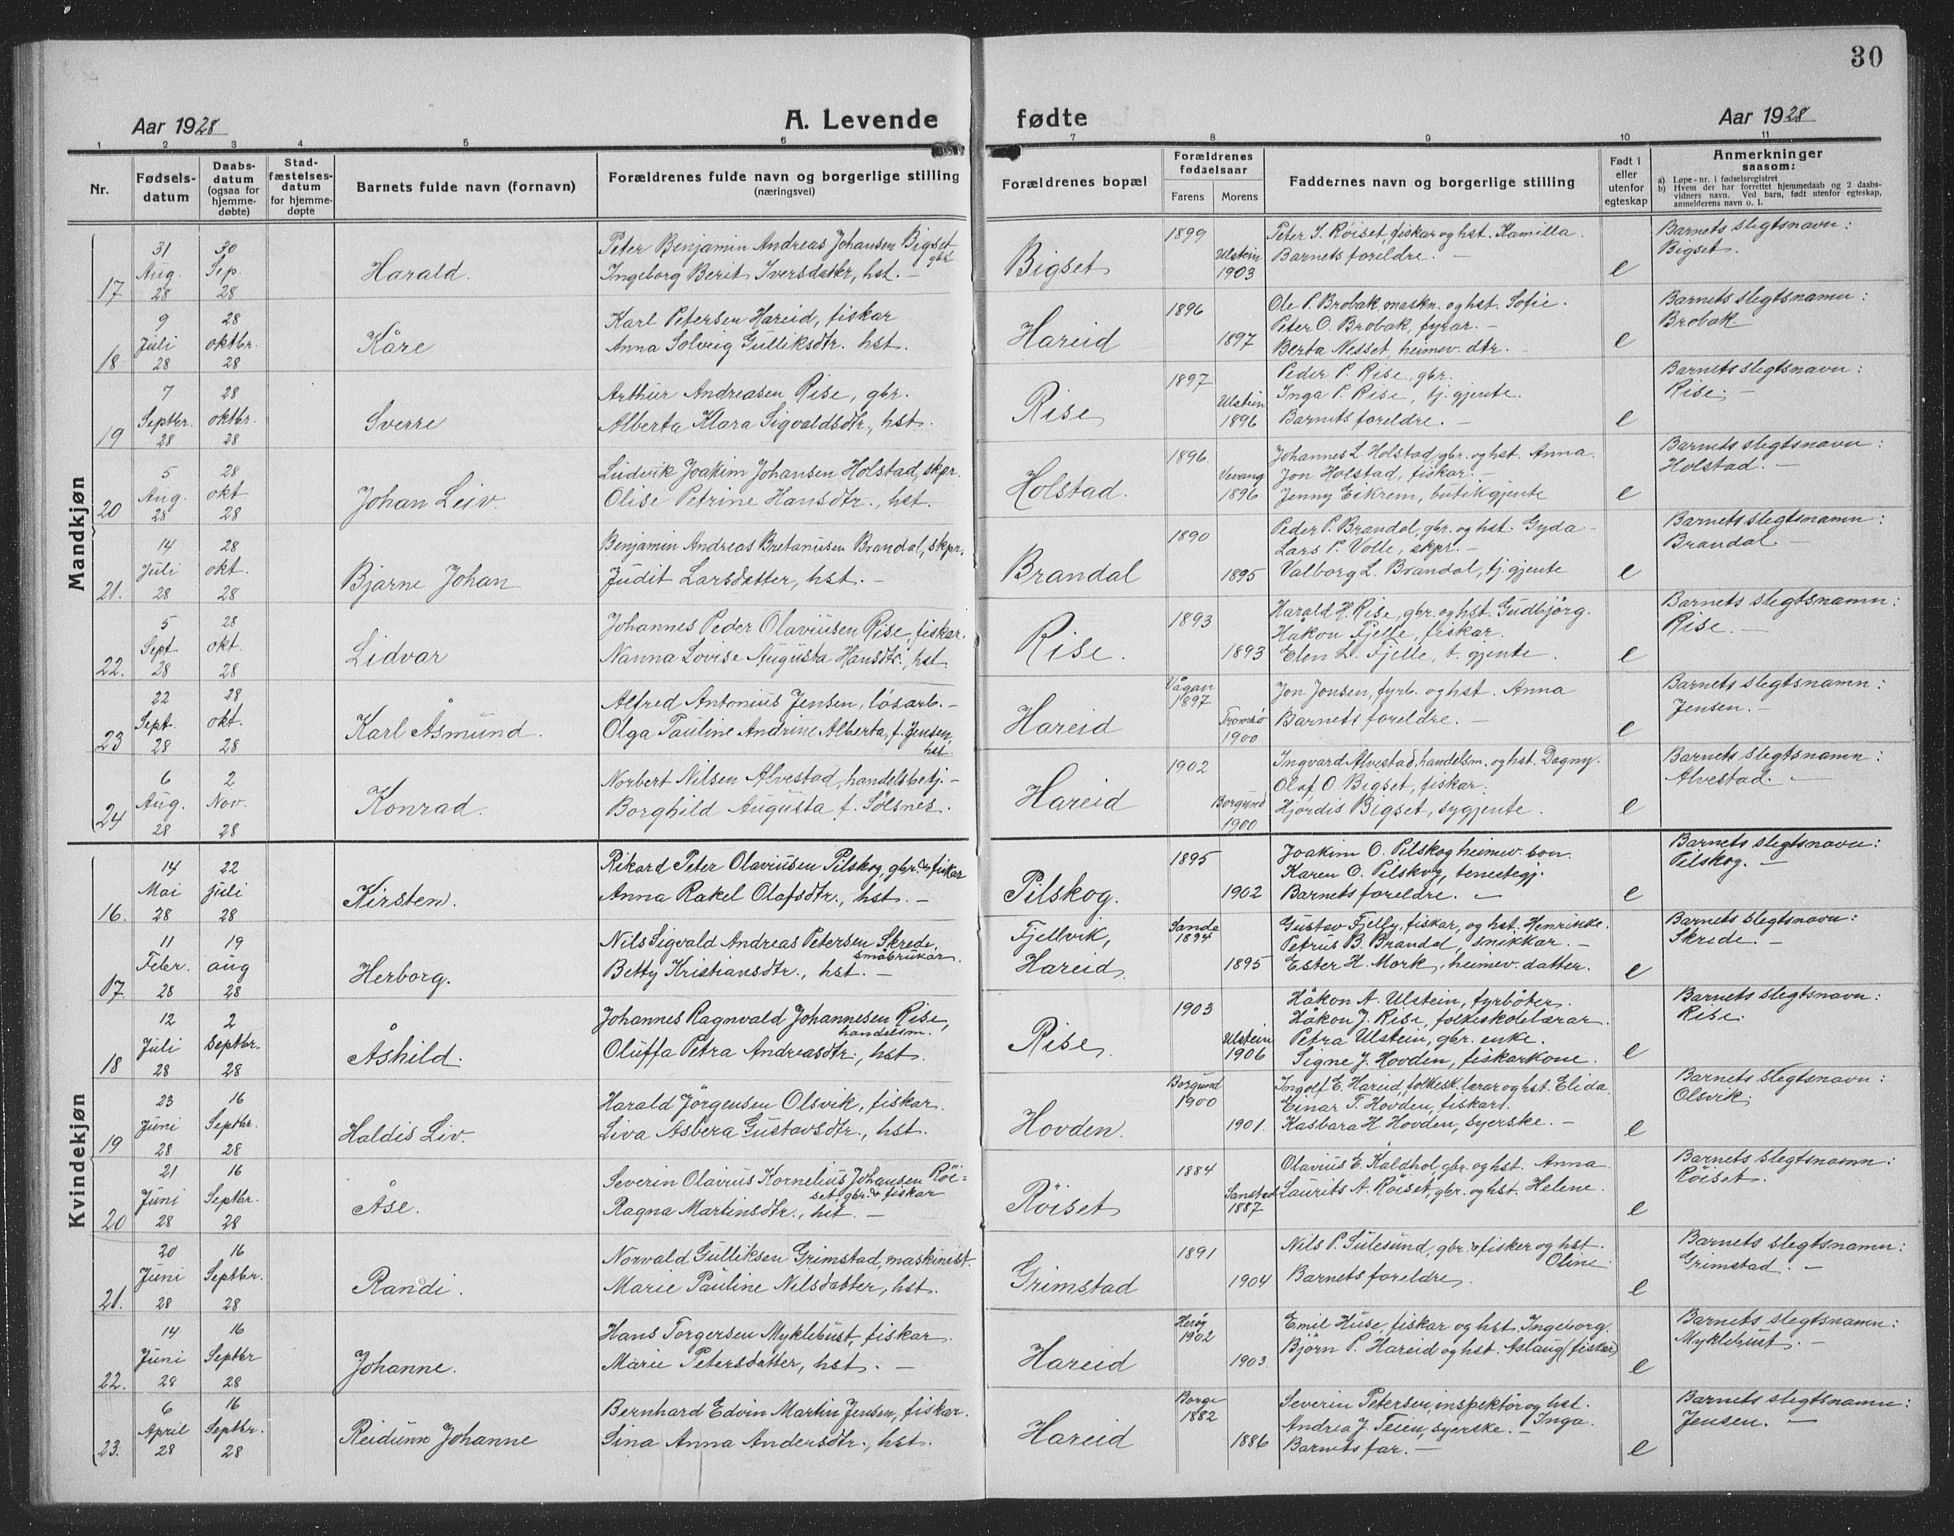 30
Aar 1928
A. Levende
fødte
Aar 1928
1 2 3 4 5 6 7 8 9 10 11
Nr.
Fødsels-
datum
Daabs-
datum
(ogsaa for
hjemme-
døbte)
Stad-
fæstelses-
datum
for hjemme-
døpte
Barnets fulde navn (fornavn)
Forældrenes fulde navn og borgerlige stilling
(næringsvei)
Forældrenes bopæl
Forældrenes
fødselsaar
Farens
Morens
Faddernes navn og borgerlige stilling
Født i
eller
utenfor
egteskap
Anmerkninger
saasom:
a) Løpe-nr. i fødselsregistret
b) Hvem der har forrettet hjemmedaab og 2 daabs-
vidners navn. Ved barn, født utenfor egteskap,
anmelderens navn o. l.
Mandkjøn
17
31
Aug.
28
30
Sep.
28
Harald.
Peter Benjamin Andreas Johansen Bigset
gbr
Ingeborg Berit Iversdatter, hst. –
Bigset
1899
Ulstein
1903
Peter S. Røiset, fiskar og hst. Kamilla.
Barnets foreldre. –
e
Barnets slegtsnavn:
Bigset.
18
9
Juli
28
28
oktbr.
28
Kåre
Karl Petersen Hareid, fiskar
Anna Solveig Gulliksdtr. hst.
Hareid
1896
1897
Ole P. Brobak maskn. og hst. Sofie.
Peter O. Brobak, fyrar. –
Berta Nesset, heimev. dtr.
e
Barnets slegtsnamn:
Brobak
19
7
Septbr.
28
28
oktbr.
28
Sverre
Arthur Andreasen Rise, gbr.
Alberta Klara Sigvaldsdtr, hst.
Rise
1897
Ulstein
1896
Peder P. Rise, gbr.
Inga P. Rise, tj. gjente.
Barnets foreldre. –
e
Barnets slegtsnavn:
Rise. –
20
5
Aug.
28
28
okt
28
Johan Leiv.
Ludvik Joakim Johansen Holstad, skpr.
Olise Petrine Hansdtr., hst.
Holstad.
1896
Vevang
1896
Johannes L. Holstad, gbr. og hst. Anna.
Jon Holstad, fiskar. –
Jenny Eikrem, butikgjente
e
Barnets slegtsnavn:
Holstad. –
21.
14
Juli
28
28
okt.
28
Bjarne Johan
Benjamin Andreas Bretanusen Brandal, skpr.
Judit Larsdatter, hst. –
Brandal
1890
1895
Peder P. Brandal, gbr. og hst. Gyda –
Lars P. Volle, skpr. –
Valborg L. Brandal, tj. gjente
e
Barnets slegtsnamn:
Brandal –
22.
5
Sept
28
28
okt.
28
Lidvar
Johannes Peder Olaviusen Rise, fiskar.
Nanna Lovise Augusta Hansdtr, hst
Rise.
1893
1893
Harald H. Rise, gbr. og hst. Gudbjørg.
Håkon Fjelle, fiskar.
Elen L. Fjelle, t. gjente.
e
Barnets slegtsnamn:
Rise. –
23
22
Sept.
28
28
okt.
28
Karl Åsmund.
Alfred Antonius Jensen, løsarb. –
Olga Pauline Andrine Alberta, f. Jensen,
hst.
Hareid
Vågan
1897
Tromsø
1900
Jon Jonsen, fyrb. og hst. Anna
Barnets foreldre. –
e
Barnets slegtsnamn:
Jensen. –
24
6
Aug.
28
2
Nov.
28
Konrad.
Norbert Nilsen Alvestad, handelsbetj. –
Borghild Augusta f. Sølsnes.
Hareid
1902
Borgund
1900
Ingvard Alvestad, handelsm. og hst. Dagny.
Olaf O. Bigset, fiskar.
Hjørdis Bigset, sygjente.
e
Barnets slegtsnamn:
Alvestad. –
Kvindekjøn
16.
14
Mai
28
22
juli
28
Kirsten.
Rikard Peter Olaviusen Pilskog, gbr. & fiskar
Anna Rakel Olafsdtr., hst. –
Pilskog.
1895
1902
Joakim O. Pilskog heimev. son.
Karen O. Pilskog, tenestegj.
Barnets foreldre. –
e
Barnets slegtsnavn:
Pilskog. –
17
11
Febr.
28
19
aug
28
Herborg.
Nils Sigvald Andreas Petersen Skrede,
småbrukar.
Betty Kristiansdtr., hst. –
Fjellvik,
Hareid
Sande
1894
1895
Gustav Fjelby, fiskar, og hst. Henrikke.
Petrus B. Brandal, snikkar. –
Ester H. Mork, heimev. datter.
e
Barnets slegtsnavn:
Skrede. –
18
12
Juli
28
2
Septbr.
28
Åshild.
Johannes Ragnvald Johannesen Rise,
handelsm.
Oluffa Petra Andreasdtr., hst.
Rise.
1903
Ulstein
1906
Håkon A. Ulstein, fyrbøter.
Håkon J. Rise, folkeskolelærar.
Petra Ulstein, gbr. enke.
Signe J. Hovden, fiskarkone.
e
Barnets slegtsnavn:
Rise.
19
23
Juni
28
16
Septbr.
28
Haldis Liv.
Harald Jörgensen Olsvik, fiskar.
Liva Asbera Gustavsdtr., hst.
Hovden.
Borgund
1900
1901.
Ingolf E. Hareid, folkesk. lærar og hst. Elida
Einar T. Hovden, fiskar.
Kasbara H. Hovden, syerske. –
e
Barnets slegtsnavn:
Olsvik.
20
21
Juni
28
16
Septbr.
28
Åse.
Severin Olavius Kornelius Johansen Röi-
set, gbr. & fiskar
Ragna Martinsdtr., hst. –
Röiset
1884
1887
Olavius E. Kaldhol, gbr. og hst. Anna
Laurits A. Röiset, gbr. og hst. Helene.
e
Barnets slegtsnamn:
Röiset.
21.
20
Juni
28
16
Septbr.
28
Randi.
Norvald Gulliksen Grimstad, maskinist.
Marie Pauline Nilsdatter, hst.
Grimstad
1891
1904
Nils P. Sulesund, gbr. & fisker og hst.
Oline
Barnets foreldre.
e
Barnets slegtsnamn:
Grimstad. –
22.
14
Juni
28
16
Septbr
28
Johanne.
Hans Torgersen Myklebust, fiskar.
Marie Petersdatter, hst. –
Hareid
Herøy
1902
1903.
Emil Huse, fiskar og hst. Ingeborg.
Björn P. Hareid og hst. Aslaug (fiskar)
e
Barnets slegtsnamn:
Myklebust. –
23.
6
April
28
16
Septbr.
28
Reidunn Johanne
Bernhard Edvin Martin Jensen, fiskar.
Sina Anna Andersdtr., hst.
Hareid
Borge
1882
1886
Severin Petersen, inspektør og hst.
Inga
Andrea J. Teien, syerske. –
Barnets far. –
e
Barnets slegtsnamn:
Jensen. –